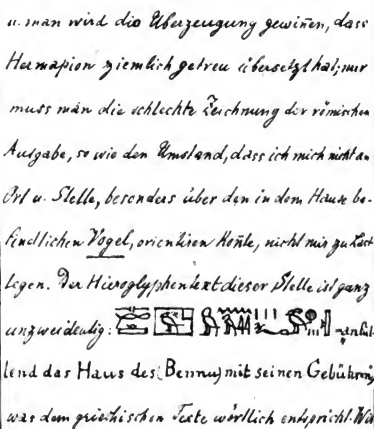 u. man wird die Überzeugung gewinnen, dass
Hermapion ziemlich getreu übersetzt hat; nur
muss man die schlechte Zeichnung der römischen
Ausgabe, so wie den Umstand, dass ich mich nicht an
Ort u. Stelle, besonders über den in dem Hause be-
findlichen Vogel, orientiren konnte, nicht mir zu Last
legen. Der Hieroglyphentext dieser Stelle ist ganz
unzweideutig: „anfül-
lend das Haus des (Bennu) mit seinen Gebühren,
was dem griechischen Texte wörtlich entspricht. Wir